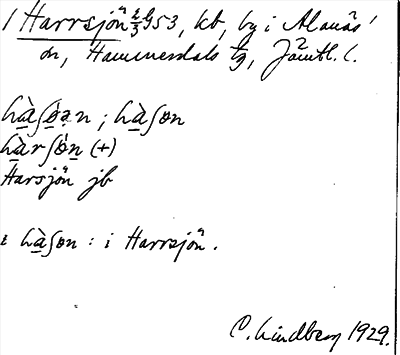 1 Harrsjön 2/3 953, kb, by i Alanäs
sn, Hammerdals tg, Jämtl. l.
hàʃøən ; hàʃøn
hàrʃøn (+)
Harsjön jb
i hàʃøn : i Harrsjön.
C. Lindberg 1929.